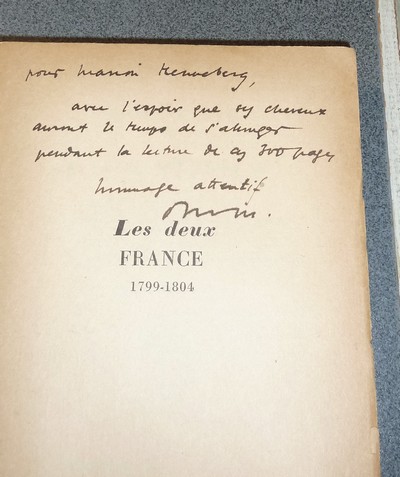 pour Manon Henneberg,
avec l'espoir que ses cheveux
auront le temps de s'allonger
pendant la lecture de ces 300 pages
hommage attentif
Les deux
FRANCE
1799-1804